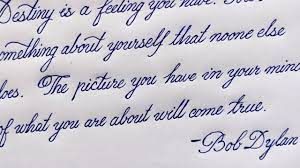 Destiny is a feeling you have
omething about yourself that noone else
oes. The picture you have in your mind
of what you are about will come true.
-Bob Dylan